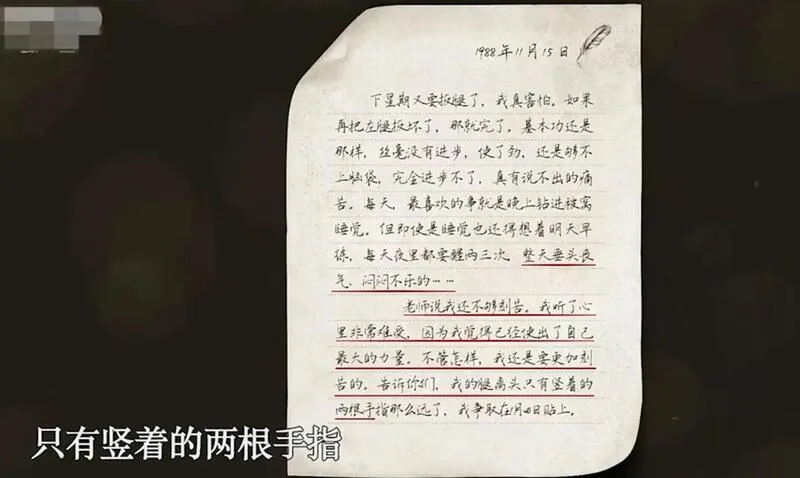 1988年11月15日
下星期又要扳腿了，我真害怕。如果
再把左腿扳坏了，那就完了。基本功还是
那样，丝毫没有进步，使了劲，还是够不
上脑袋，完全进步不了，真有说不出的痛
苦。每天，最喜欢的事就是晚上钻进被窝
睡觉。但即使是睡觉也还得想着明天早
练，每天夜里都要醒两三次。整天垂头丧
气、闷闷不乐的……
老师说我还不够刻苦。我听了心
里非常难受，因为我觉得已经使出了自己
最大的力量。不管怎样，我还是要更加刻
苦的。告诉你们，我的腿离头只有竖着的
两根手指那么远了，我争取在 日贴上。
只有竖着的两根手指